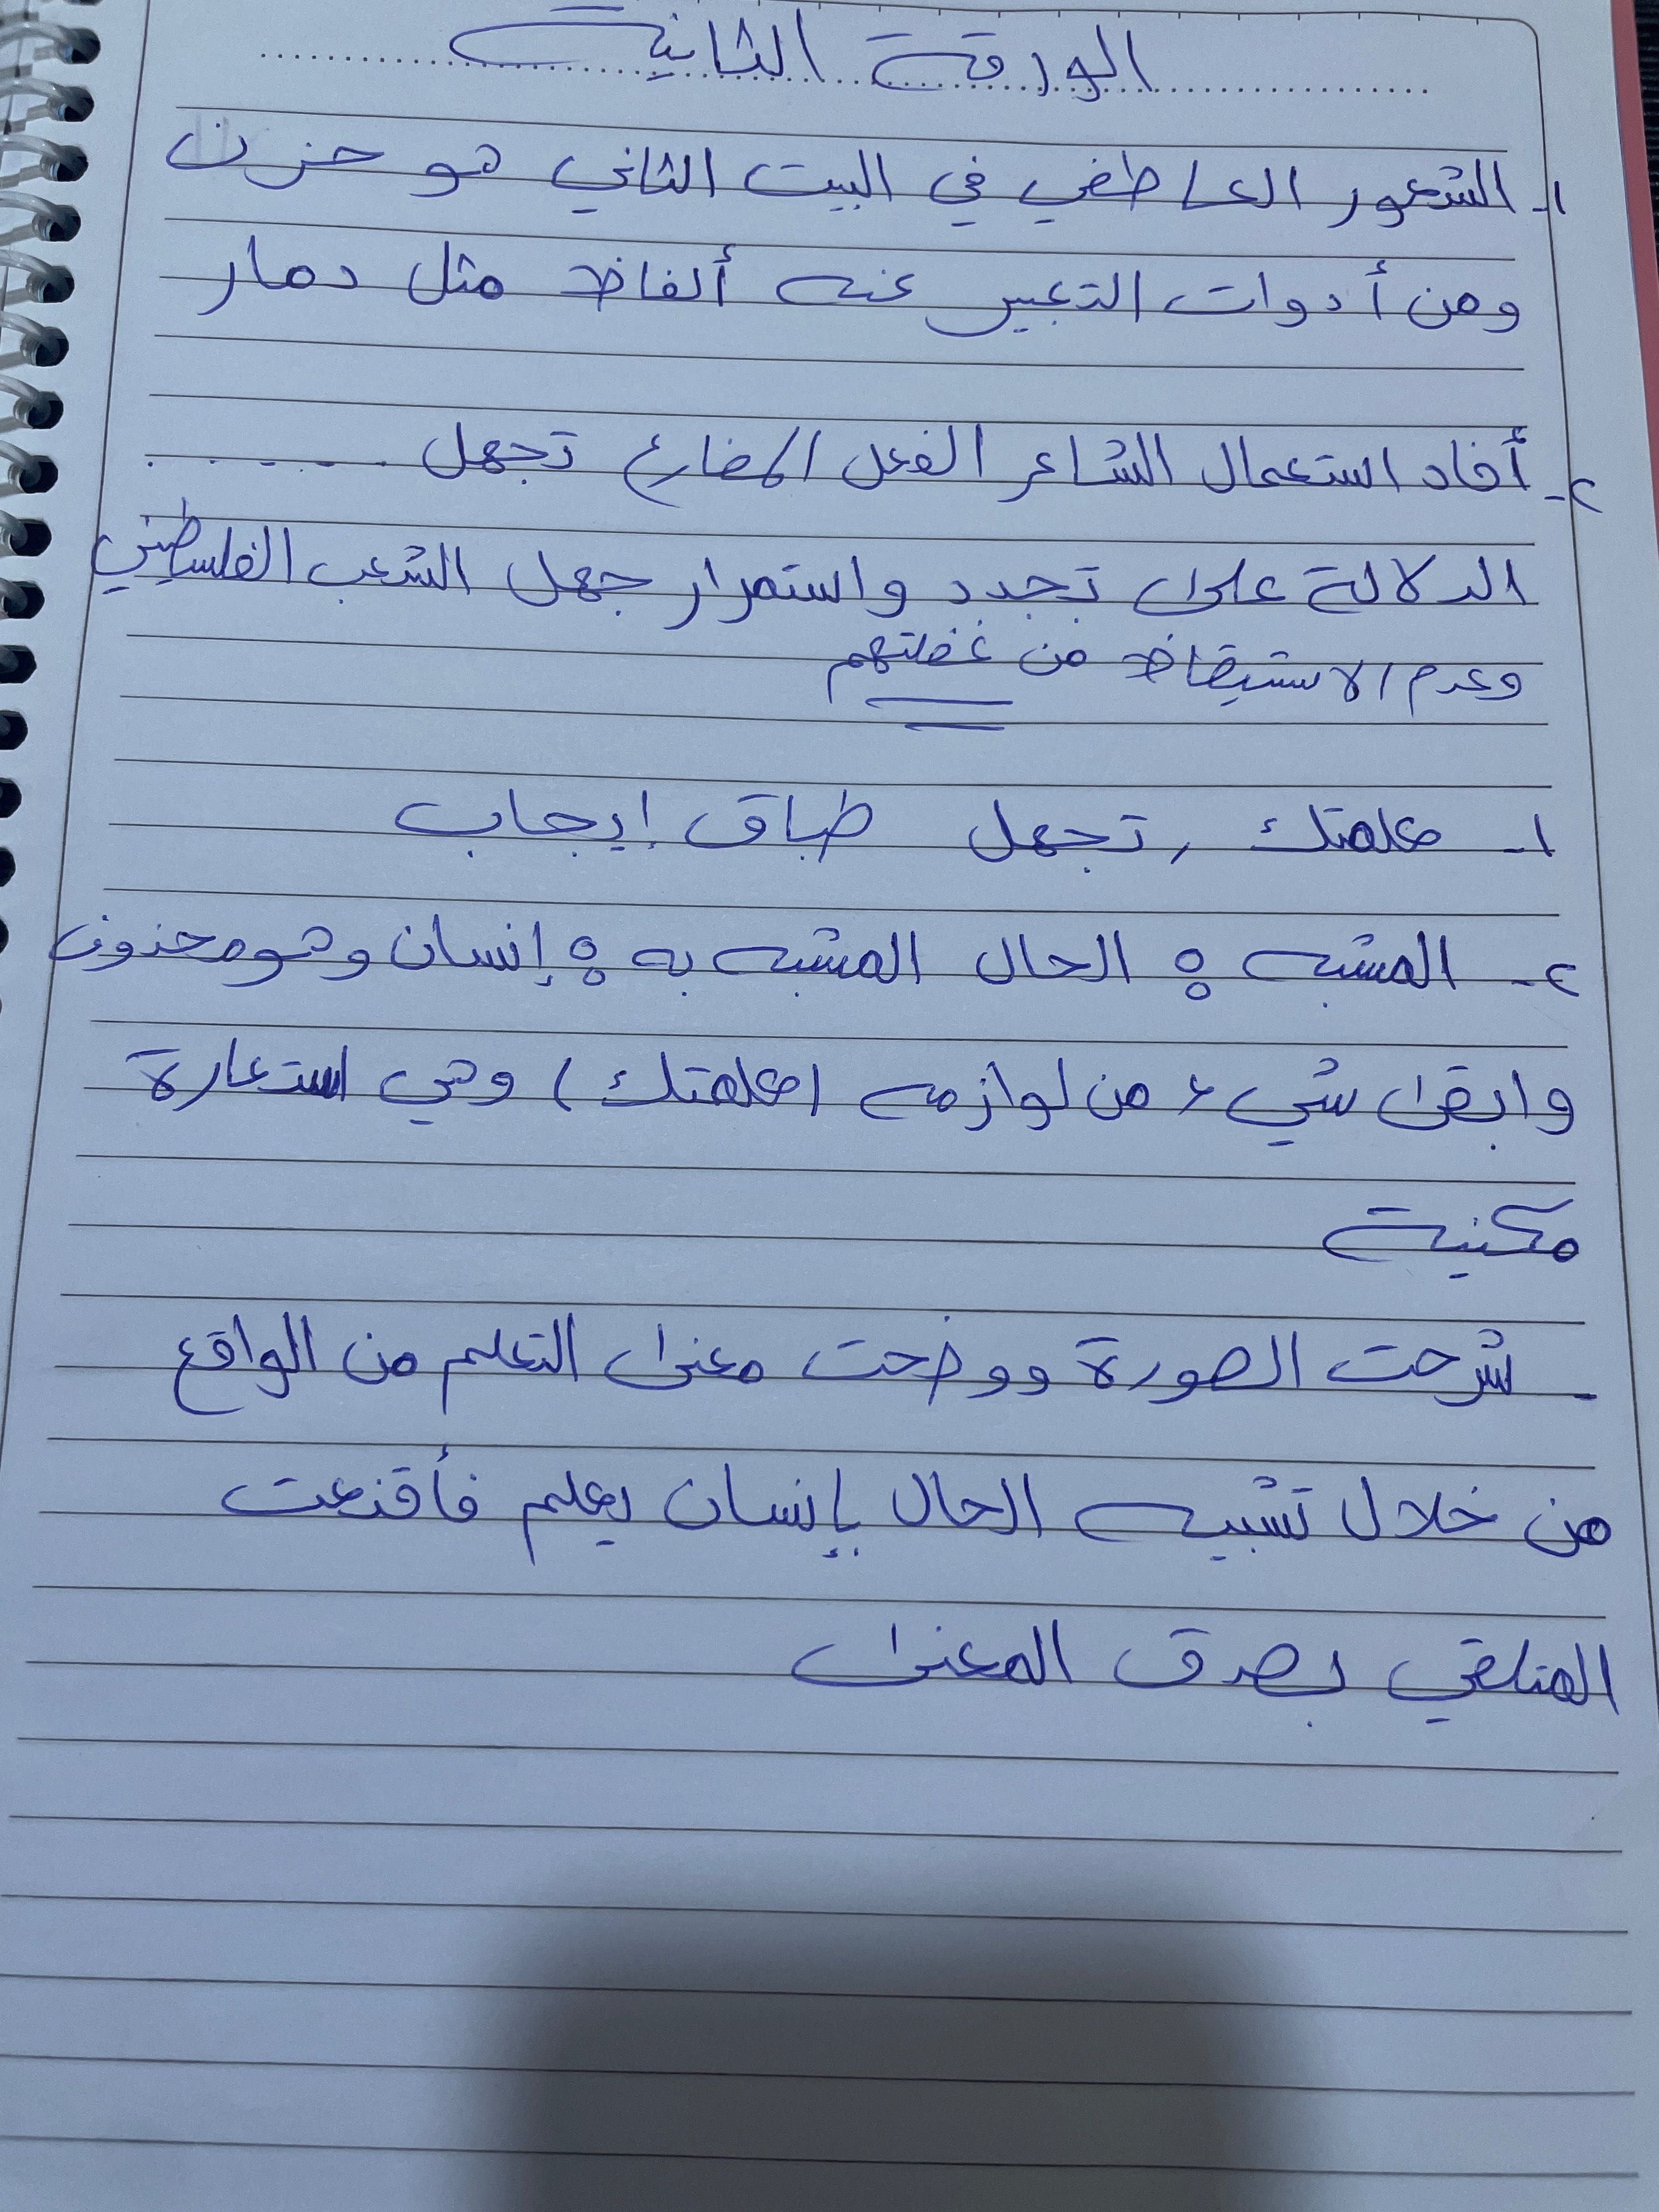 الورقة الثانية
١- الشعور العاطفي في البيت الثاني هو حزن
ومن أدوات التعبير عنه ألفاظ مثل دمار
٢- أفاد استعمال الشاعر الفعل المضارع تجهل ......
الدلالة على تجدد واستمرار جهل الشعب الفلسطيني
وعدم الاستيقاظ من غفلتهم
١- علمتك , تجهل طباق إيجاب
٢- المشبه : الحال المشبه به : إنسان وهو محذوف
وابقى شيء من لوازمه (علمتك) وهي استعارة
مكنية
- شرحت الصورة ووضحت معنى التعلم من الواقع
من خلال تشبيه الحال بإنسان يعلم فأقنعت
المتلقي بصدق المعنى